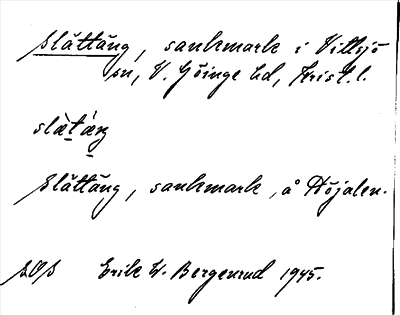 Slättäng, sankmark i Vittsjö
sn, V. Göinge hd, Krist. l.
slæ̀tæ̀ŋ
Slättäng, sankmark, å Höjalen.
SOS Erik W. Bergenrud 1945.